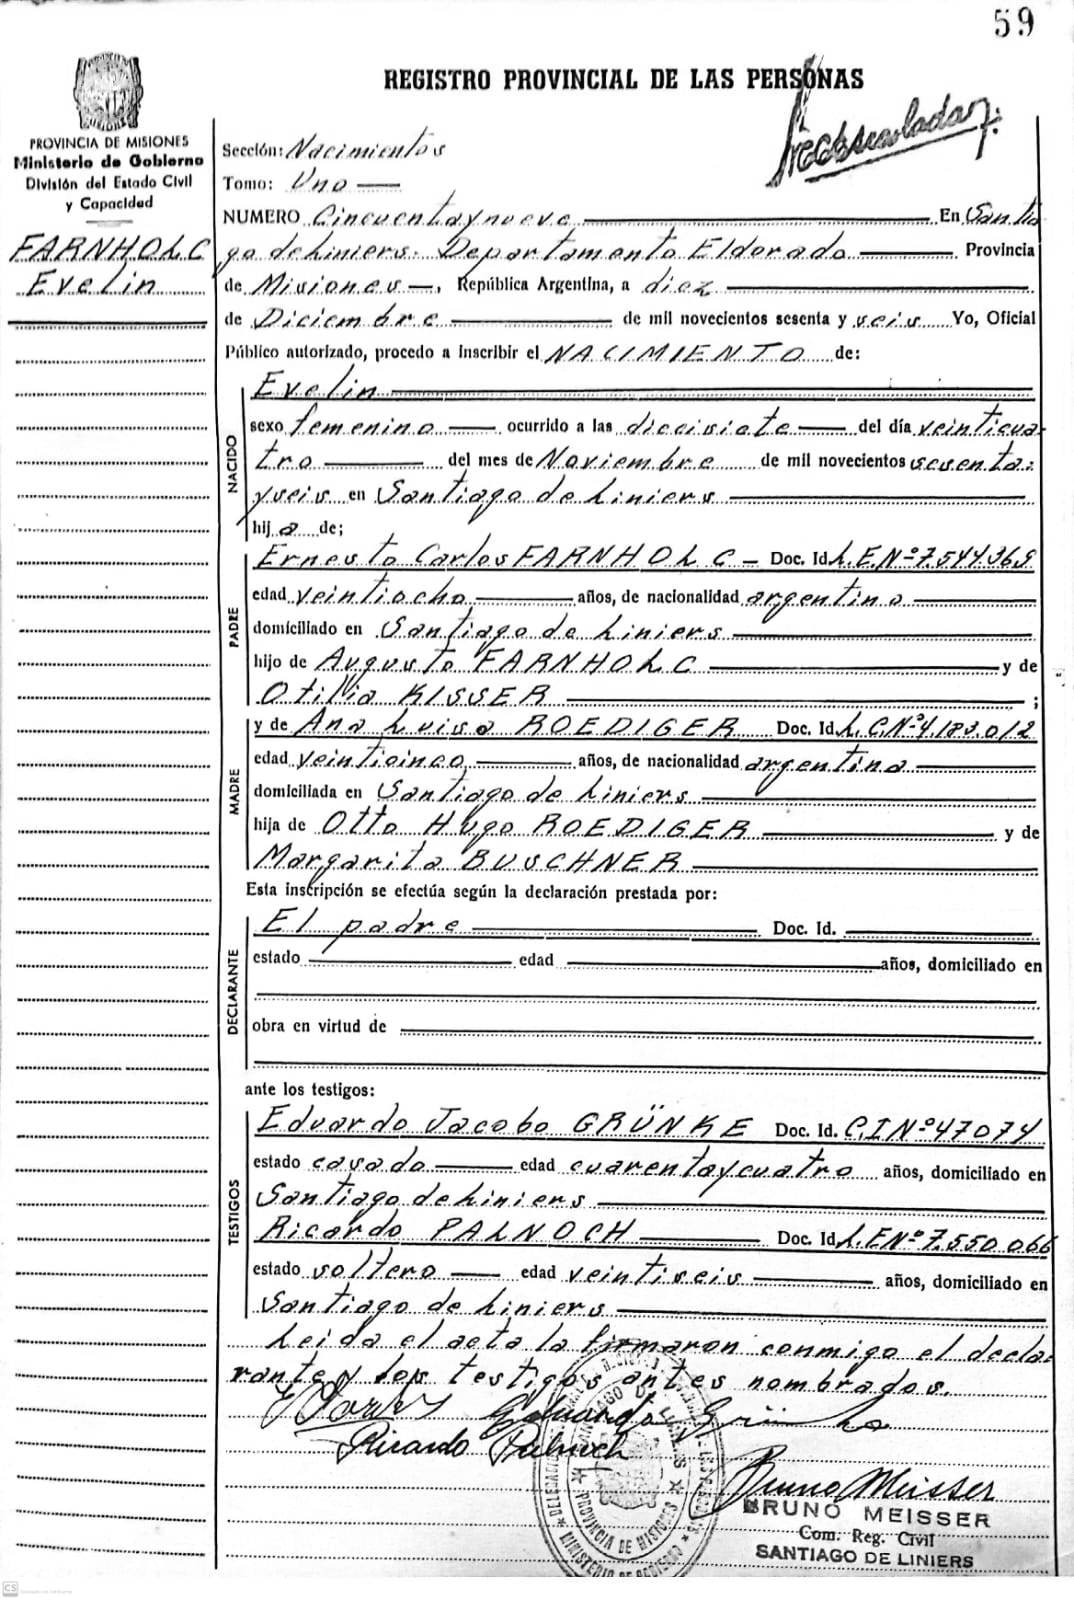 59
REGISTRO PROVINCIAL DE LAS PERSONAS
PROVINCIA DE MISIONES
Ministerio de Gobierno
División del Estado Civil
y Capacidad
FARNHOLC
Evelin
Sección: Nacimientos
Tomo: Uno
NUMERO Cincuentaynueve En Santia
go de Liniers. Departamento Eldorado Provincia
de Misiones, República Argentina, a diez
de Diciembre de mil novecientos sesenta y seis Yo, Oficial
Público autorizado, procedo a inscribir el NACIMIENTO de:
NACIDO
Evelin
sexo femenino ocurrido a las diecisiete del día veinticua-
tro del mes de Noviembre de mil novecientos sesenta:
yseis en Santiago de Liniers
hija de;
PADRE
Ernesto Carlos FARNHOLC - Doc. Id. L.E.Nº7.544.369
edad veintiocho años, de nacionalidad argentina
domiciliado en Santiago de Liniers
hijo de Augusto FARNHOLC y de
Otilia KISSER ;
MADRE
y de Ana Luisa ROEDIGER Doc. Id. L.C.Nº4.183.012
edad veinticinco años, de nacionalidad argentina
domiciliada en Santiago de Liniers
hija de Otto Hugo ROEDIGER y de
Margarita BUSCHNER
Esta inscripción se efectúa según la declaración prestada por:
DECLARANTE
El padre Doc. Id.
estado edad años, domiciliado en
obra en virtud de
ante los testigos:
TESTIGOS
Eduardo Jacobo GRÜNKE Doc. Id. C.I Nº47074
estado casado edad cuarentaycuatro años, domiciliado en
Santiago de Liniers
Ricardo PALNOCH Doc. Id. L.E Nº7.550.066
estado soltero edad veintiseis años, domiciliado en
Santiago de Liniers
Leida el acta la firmaron conmigo el decla-
rante y los testigos antes nombrados.
Eduardo Grünke
Ricardo Palnoch
PROVINCIA DE MISIONES
Bruno Meisser
BRUNO MEISSER
Com. Reg. Civil
SANTIAGO DE LINIERS
CS